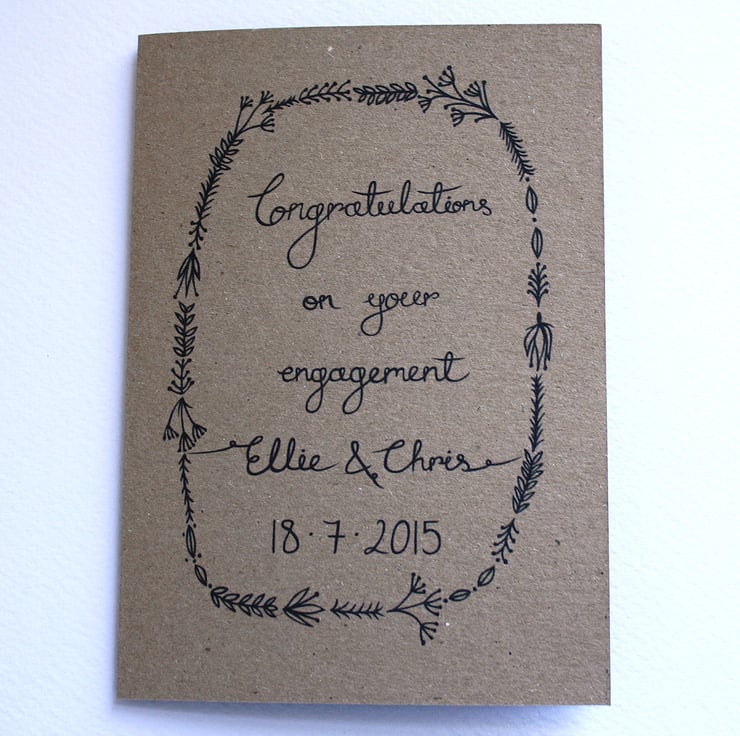 Congratulations
on your
engagement
Ellie & Chris
18·7·2015